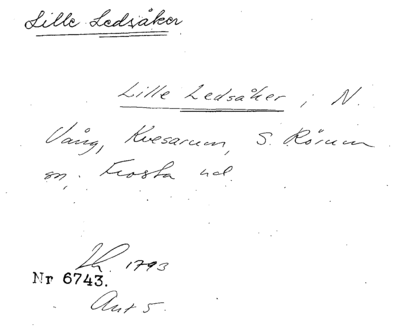 Lille Ledsåker
Lille Ledsåker, i N.
Vång, Kvesarum, S. Rörum
sn, Frosta hd.
Lh. 1793
Nr 6743.
Akt 5.